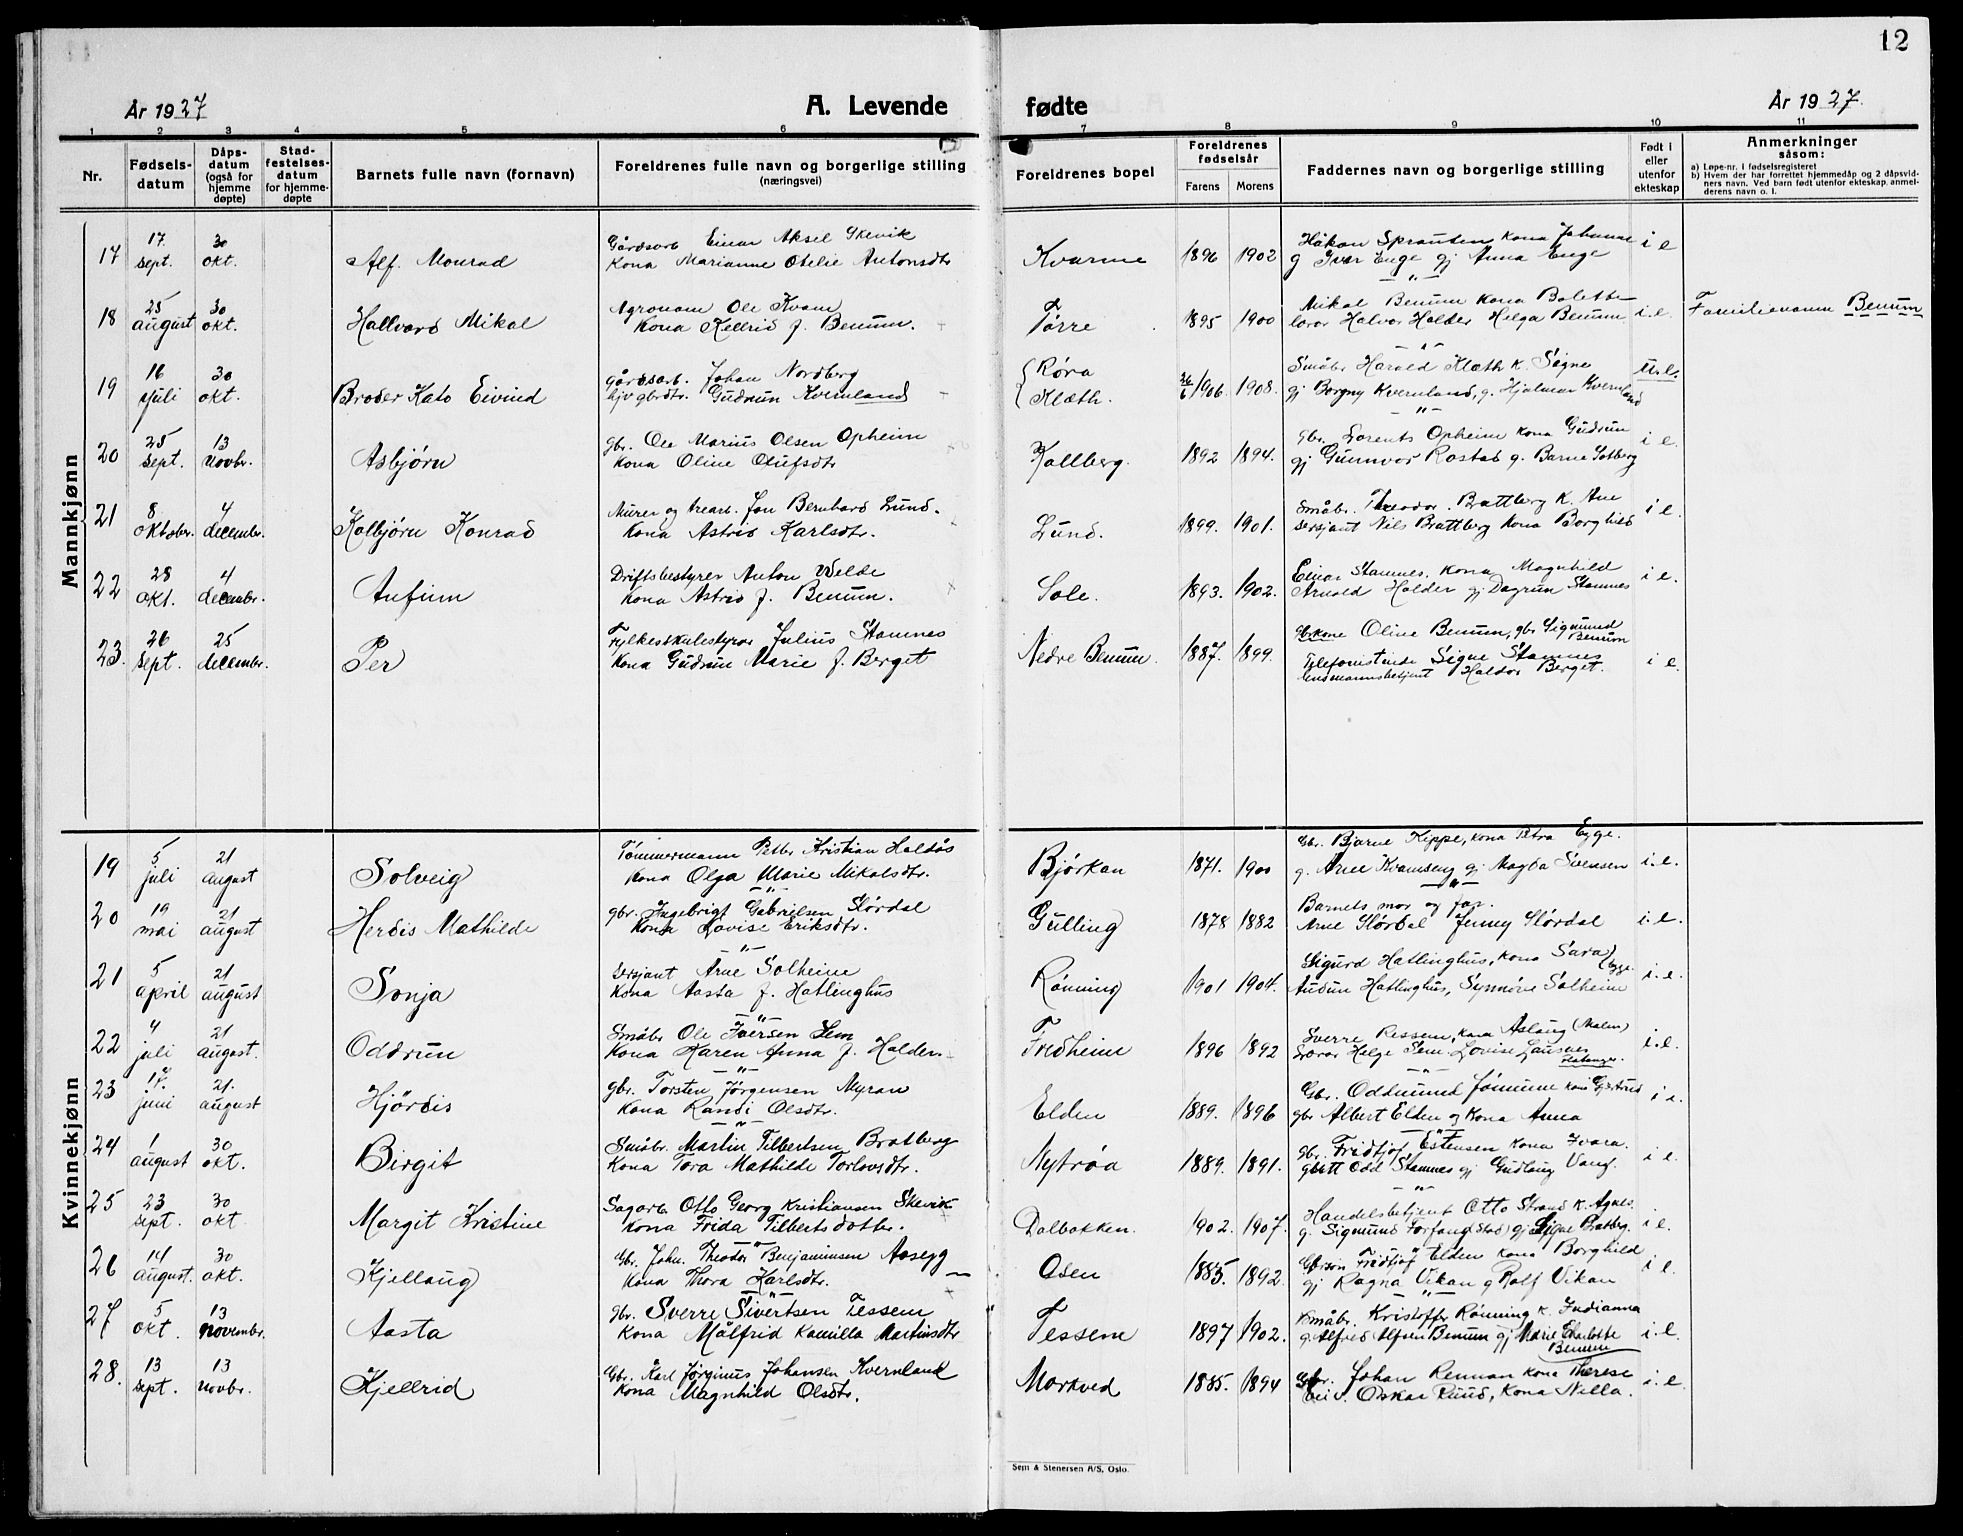 12
År 1927
A. Levende
fødte
År 1927.
1 2 3 4 5 6 7 8 9 10 11
Nr.
Fødsels-
datum
Dåps-
datum
(også for
hjemme
døpte)
Stad-
festelses-
datum
for hjemme-
døpte
Barnets fulle navn (fornavn)
Foreldrenes fulle navn og borgerlige stilling
(næringsvei)
Foreldrenes bopel
Foreldrenes
fødselsår
Farens Morens
Faddernes navn og borgerlige stilling
Født i
eller
utenfor
ekteskap
Anmerkninger
såsom:
a) Løpe-nr. i fødselsregisteret
b) Hvem der har forrettet hjemmedåp og 2 dåpsvid-
ners navn. Ved barn født utenfor ekteskap, anmel-
derens navn o. l.
Mannkjønn
17 17. sept. 30 okt. Alf Monrad
Gårdsarb Einar Aksel Skevik
Kona Marianne Otelie Antonsdtr
Kvarme 1896 1902
Håkon Sprauten kona Johanne
g Iver Enge gj Anna Enge
i e
18 25 august 30 okt. Hallvard Mikal
Agronom Ole Kvam
Kona Kellrid f. Benum.
Tørre 1895 1900
Mikal Benum kona Bolette
lærer Halvor Halder Helga Benum
i. e.
Familienavn Benum
19 16 juli 30 okt. Broder Kato Eivind
gårdsarb. Johan Nordberg
hjv gbrdtr. Gudrun Kvernland
Røra
Klæth.
26/6 1906 1908.
Småbr. Harald Klæth k. Signe
gj Borgny Kvernland, g. Hjalmar Kvernland
u. e.
20 25 sept. 13 novbr. Asbjørn
gbr. Ole Marius Olsen Opheim
Kona Oline Olufsdtr
Kallberg. 1892 1894.
gbr. Lorents Opheim kona Gudrun
gj Gunnvor Rostad g. Barne Solberg
i e.
21 8 oktober. 4 decembr. Kolbjørn Konrad
Murer og trearb. Jon Bernhard Lund.
Kona Astrid Karlsdtr.
Lund. 1899. 1901.
Småbr. Theodor Brattberg K. Ane
Sersjant Nils Brattberg kona Borghild
i e.
22 28 okt. 4 decembr. Anfinn
Driftsbestyrer Anton Velde
Kona Astrid f. Benum.
Sole. 1893. 1902.
Einar Stamnes, kona Magnhild
Arnold Halder gj Dagrun Stamnes
i e.
23. 26 sept. 25 decembr. Per
Fylkesskulestyrar Julius Stamnes
Kona Gudrun Marie f. Berget
Nedre Benum. 1887. 1899.
Gbrkone Oline Benum, gbr Sigmund
Benum
Telefonistinde Signe Stamnes
lensmannsbetjent Haldor Berget.
i e.
Kvinnekjønn
19 5 juli 21 august Solveig
Tømmermann Petter Kristian Haldås
Kona Olga Marie Mikalsdtr.
Bjørkan 1871. 1900
Gbr. Bjarne Kippe, kona Petra Egge.
g. Arne Kvamseng gj Magda Svensen
i. e.
20 19 mai 21 august Herdis Mathilde
gbr. Ingebrigt Gabrielsen Slørdal
Kona Lovise Eriksdtr.
Gulling 1878 1882
Barnets mor og far.
Arne Slørdal Jenny Slørdal
i. e.
21 5 april 21 august Sonja
Sersjant Arne Solheim
Kona Aasta f. Hatlinghus
Rønning 1901 1904.
Sigurd Hatlinghus, kona Sara
Audun Hatlinghus, Synnøve Solheim
i. e.
22 4 juli 21 august. Oddrun
Småbr Ole Iversen Sem
Kona Karen Anna f. Halden
Fredheim 1896 1892
Sverre Ressem, kona Aslaug (Malm)
Lærer Helge Sem Lovise
i. e.
23 17. juni 21. august Hjørdis
gbr. Torsten Jørgensen Myran
Kona Randi Olsdtr.
Elden 1889. 1896
Gbr. Oddmund Jømme kona Gjertrud
gbr Albert Elden og kona Anna
i e.
24 1 august 30 okt. Birgit
Småbr. Martin Tilbertsen Bratberg
Kona Tora Mathilde Torlovsdtr.
Nytrøa 1889. 1891.
gbr. Fridtjof Estensen kona Ivara.
gbrtt Odd Stamnes gj Gudlaug Vang.
i e.
25 23 sept. 30 okt Margit Kristine
Sagarb Otto Georg Kristiansen Skevik
Kona Frida Tilbertsdotter.
Dalbakken. 1902. 1907.
Handelsbetjent Otto Strand K. Agnes.
g. Sigmund Forfang Stod gj Signe Bratberg.
i e.
26 14 august. 30 okt. Kjellaug
Gbr. Johan Theodor Benjaminsen Aasegg
Kona Thora Karlsdtr.
Osen 1885. 1892.
Fridtjof Elden kona Borghild
gj Ragna Vikan g Rolf Vikan
i e.
27 5 okt. 13 novembr. Aasta
gbr. Sverre Sivertsen Tessem
Kona Målfrid Kamilla Martinsdtr
Tessem 1897 1902.
Småbr. Kristoffer Rønning K. Indianna
g. Alfred Alfsen Benum gj Marie Charlotte
Benum
i. e.
28. 13 sept. 13 novbr. Kjellrid
Gbr. Karl Jørginus Johansen Kvernland
Kona Magnhild Olsdtr.
Morkved 1885. 1894
Gbr. Johan Rennan kona Therese
Oskar Ruud, kona Nella.
i. e.
Sem & Stenersen A/S, Oslo.